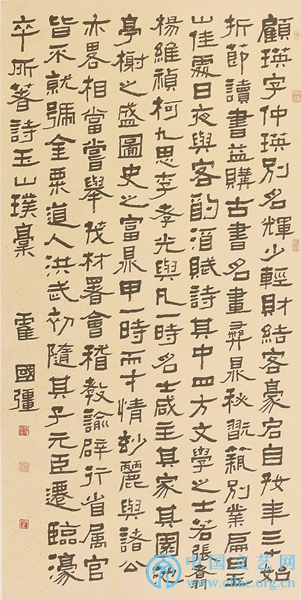 顧瑛字仲瑛別名輝少輕財結客豪宕自放年三十始
折節讀書益購古書名畫彝鼎秘翫築別業扁玉
山佳處日夜與客酒賦詩其中四方文學之士若張翥
楊維禎柯九思李孝光與凡一時名士咸主其家其園池
亭榭之盛圖史之富鼎甲一時而才情妙麗與諸公
亦畧相當嘗舉茂材署會稽教諭辟行省属官
皆不就號金粟道人洪武初隨其子元臣遷臨濠
卒所著詩玉山璞稾
霍國彊
中国文艺网